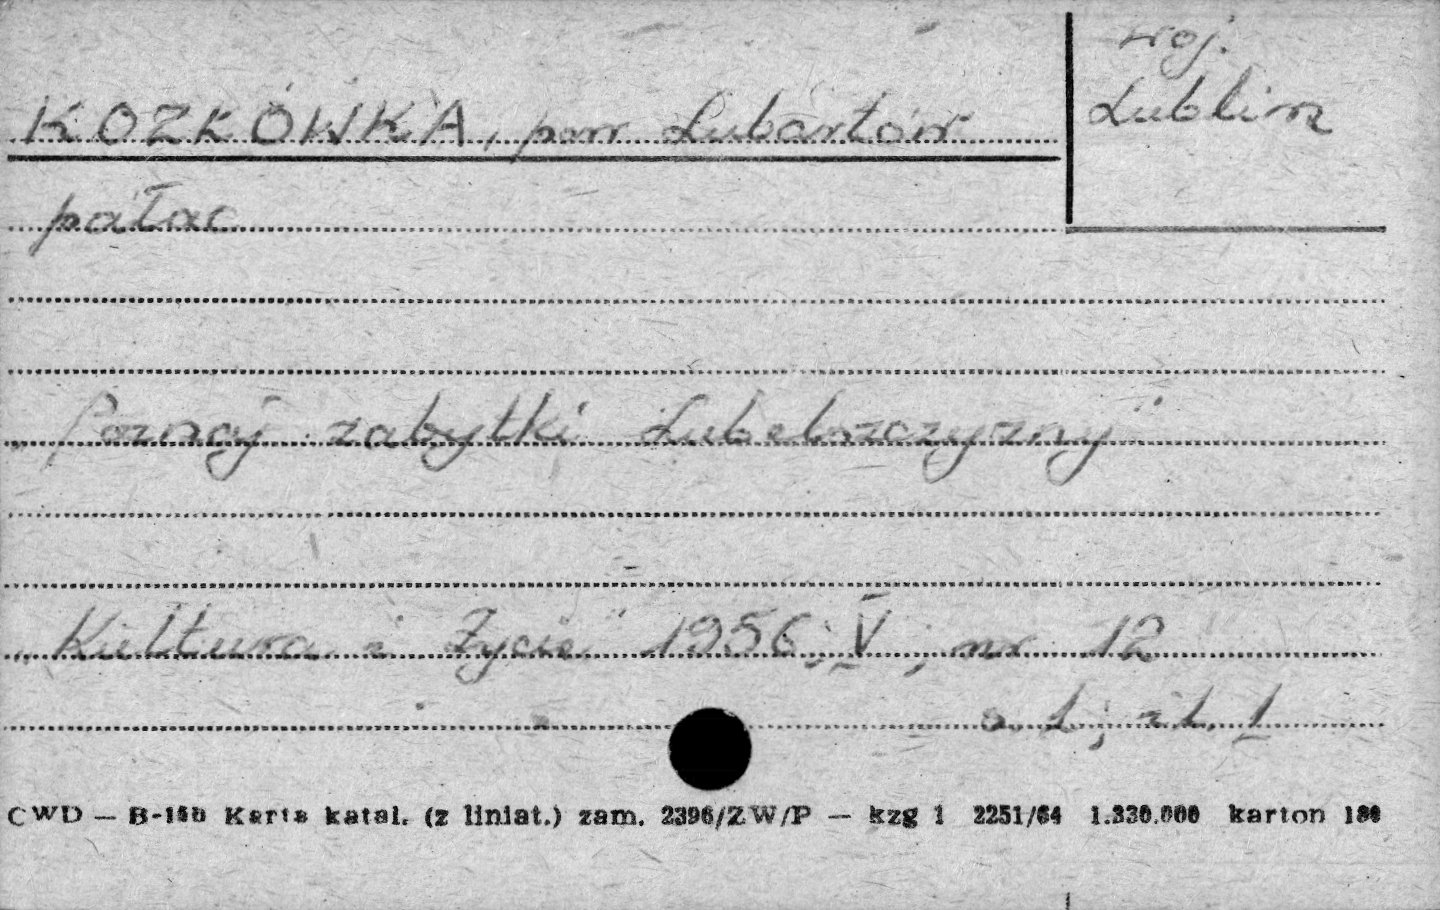 woj.
Lublin
KOZŁÓWKA, pow. Lubartów
pałac
"Poznaj zabytki Lubelszczyzny"
"Kultura i Życie" 1956, V, nr 12
s. 1; il. 1
CWD — B-150 Karta katal. (z liniat.) zam. 2396/ZW/P — kzg 1 2251/64 1.330.000 karton 180